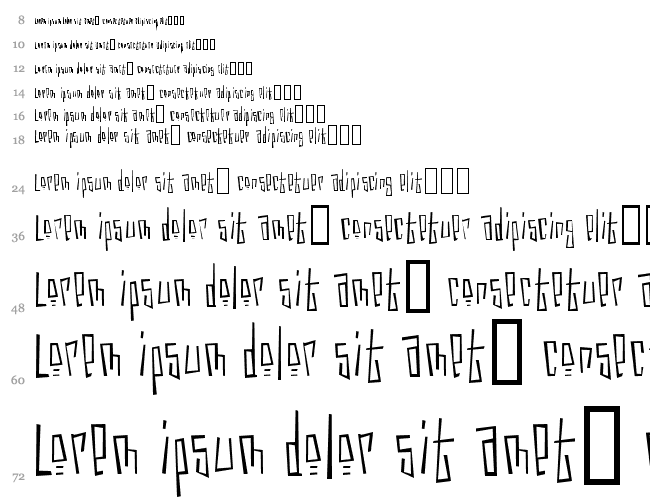 8 Lorem ipsum dolor sit amet□ consectetuer adipiscing elit□□□
10 Lorem ipsum dolor sit amet□ consectetuer adipiscing elit□□□
12 Lorem ipsum dolor sit amet□ consectetuer adipiscing elit□□□
14 Lorem ipsum dolor sit amet□ consectetuer adipiscing elit□□□
16 Lorem ipsum dolor sit amet□ consectetuer adipiscing elit□□□
18 Lorem ipsum dolor sit amet□ consectetuer adipiscing elit□□□
24 Lorem ipsum dolor sit amet□ consectetuer adipiscing elit□□□
36 Lorem ipsum dolor sit amet□ consectetuer adipiscing elit□□
48 Lorem ipsum dolor sit amet□ consectetuer a
60 Lorem ipsum dolor sit amet□ consec
72 Lorem ipsum dolor sit amet□